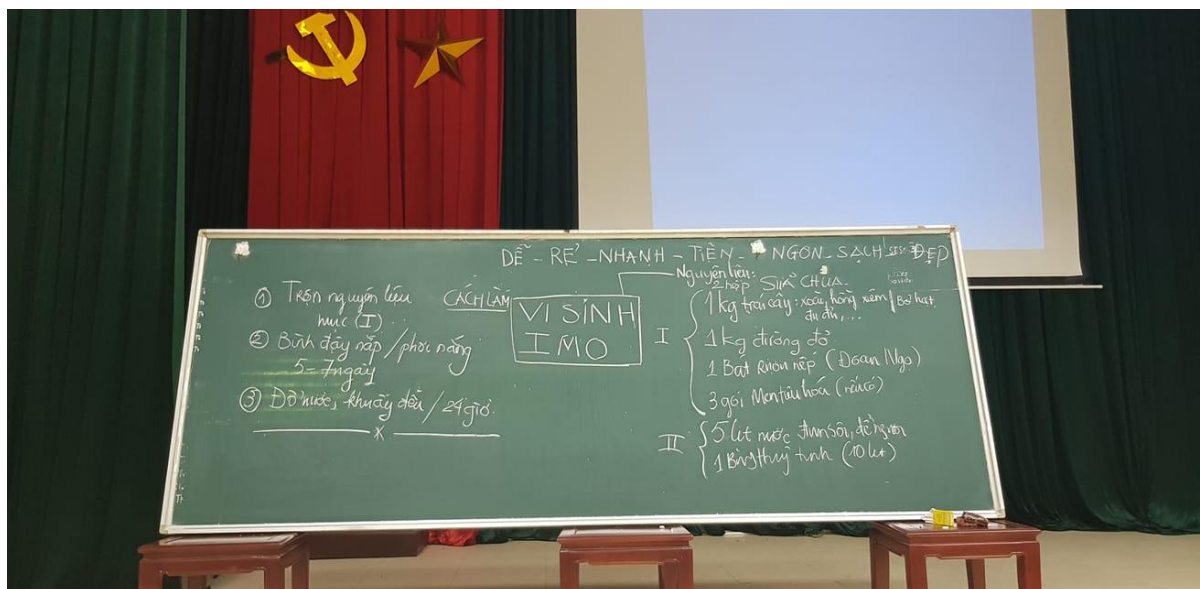 DỄ - RẺ - NHANH - TIỀN - NGON - SẠCH - ĐẸP
① Trộn nguyên liệu
mục (I)
② Bình đậy nắp / phơi nắng
5 - 7 ngày
③ Đổ nước, khuấy đều / 24 giờ.
CÁCH LÀM
VI SINH
IMO
Nguyên liệu:
I
2 hộp SỮA CHUA.
1 kg trái cây: xoài, hồng xiêm / Bỏ hạt,
đu đủ,...
1 kg đường đỏ
1 Bát Rượu nếp (Đoan Ngọ)
3 gói Men tiêu hoá (nếu có)
II
5 lít nước đun sôi, để nguội
1 Bình thuỷ tinh (10 lít)